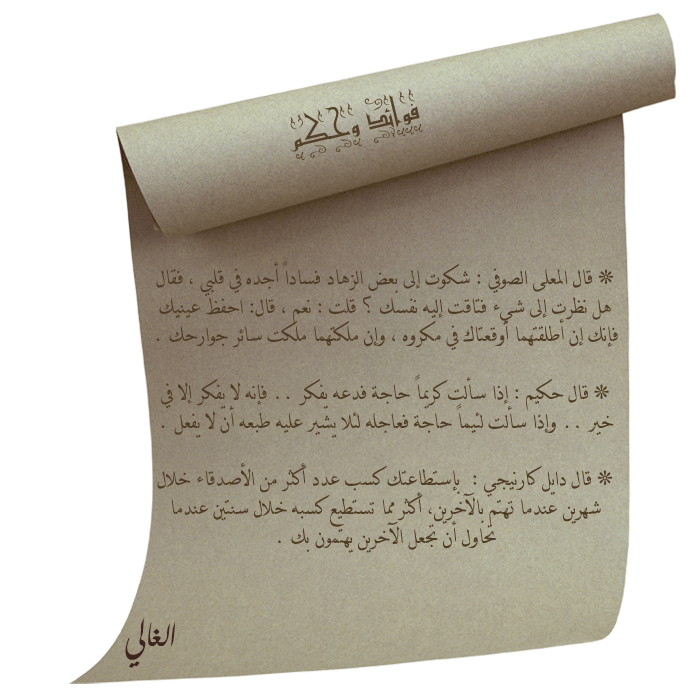 فوائد وحكم
❊ قال المعلى الصوفي : شكوت إلى بعض الزهاد فساداً أجده في قلبي ، فقال
هل نظرت إلى شيء فتاقت إليه نفسك ؟ قلت : نعم ، قال: احفظ عينيك
فإنك إن أطلقتهما أوقعتاك في مكروه ، وإن ملكتهما ملكت سائر جوارحك .
❊ قال حكيم : إذا سألت كريماً حاجة فدعه يفكر . . فإنه لا يفكر إلا في
خير . . وإذا سألت لئيماً حاجة فعاجله لئلا يشير عليه طبعه أن لا يفعل .
❊ قال دايل كارنيجي : بإستطاعتك كسب عدد أكثر من الأصدقاء خلال
شهرين عندما تهتم بالآخرين، أكثر مما تستطيع كسبه خلال سنتين عندما
تحاول أن تجعل الآخرين يهتمون بك .
الغالي